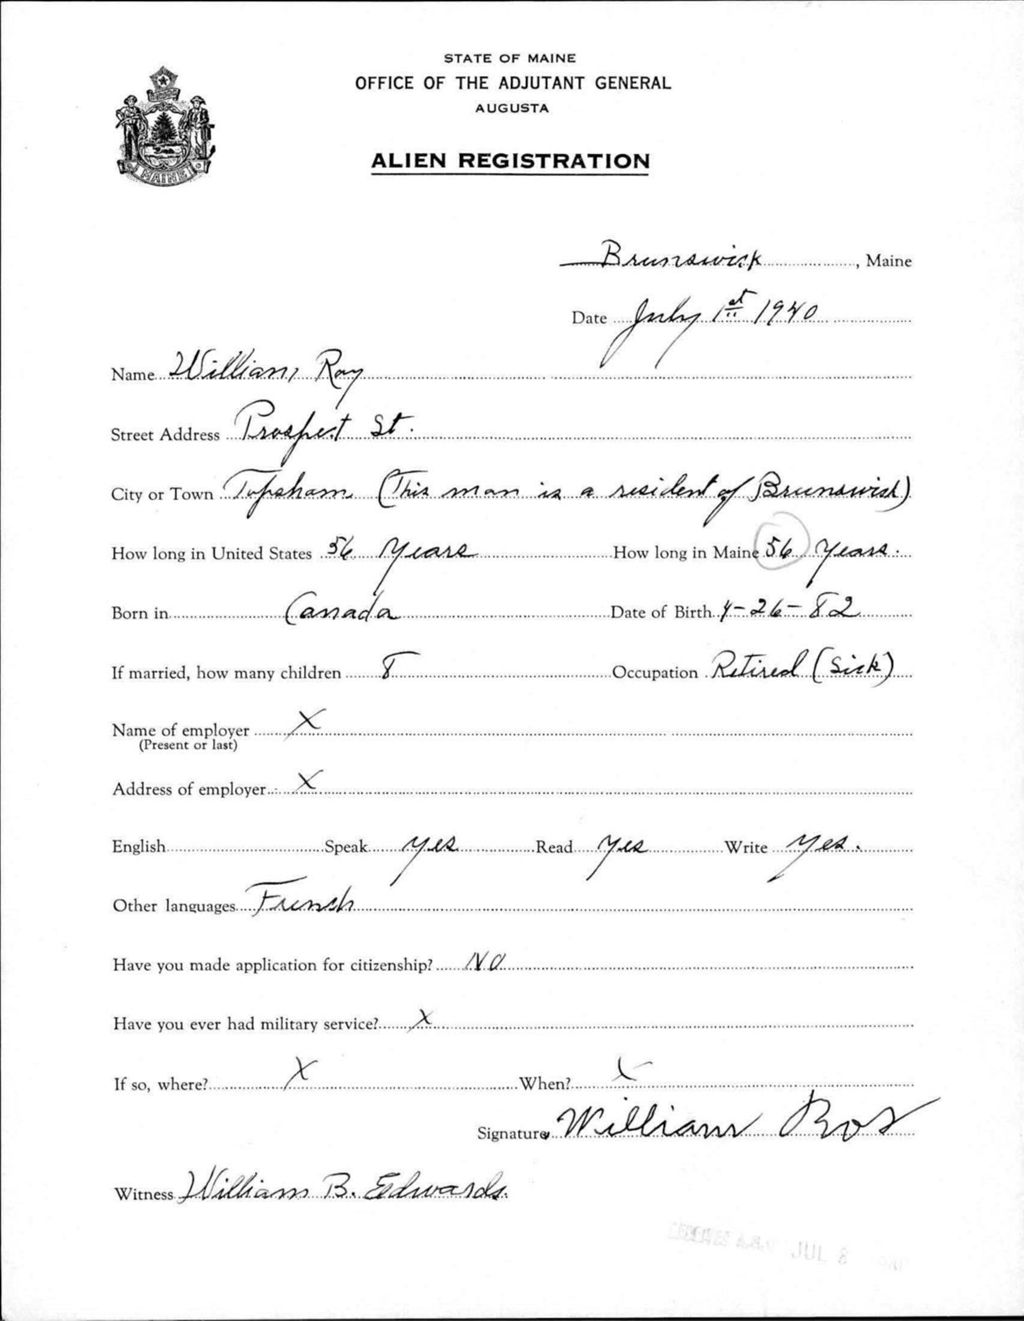 STATE OF MAINE
OFFICE OF THE ADJUTANT GENERAL
AUGUSTA
MAINE
ALIEN REGISTRATION
Brunswick, Maine
Date July 1st 1940
Name William Roy
Street Address Prospect St.
City or Town Topsham (This man is a resident of Brunswick)
How long in United States 56 Years How long in Maine 56 Years.
Born in Canada Date of Birth 4-26-82
If married, how many children 8 Occupation Retired (Sick)
Name of employer X
(Present or last)
Address of employer X
English Speak yes Read Yes Write Yes.
Other languages French
Have you made application for citizenship? NO
Have you ever had military service? X
If so, where? X When? X
Signature William Roy
Witness William B. Edwards.
JUL 8